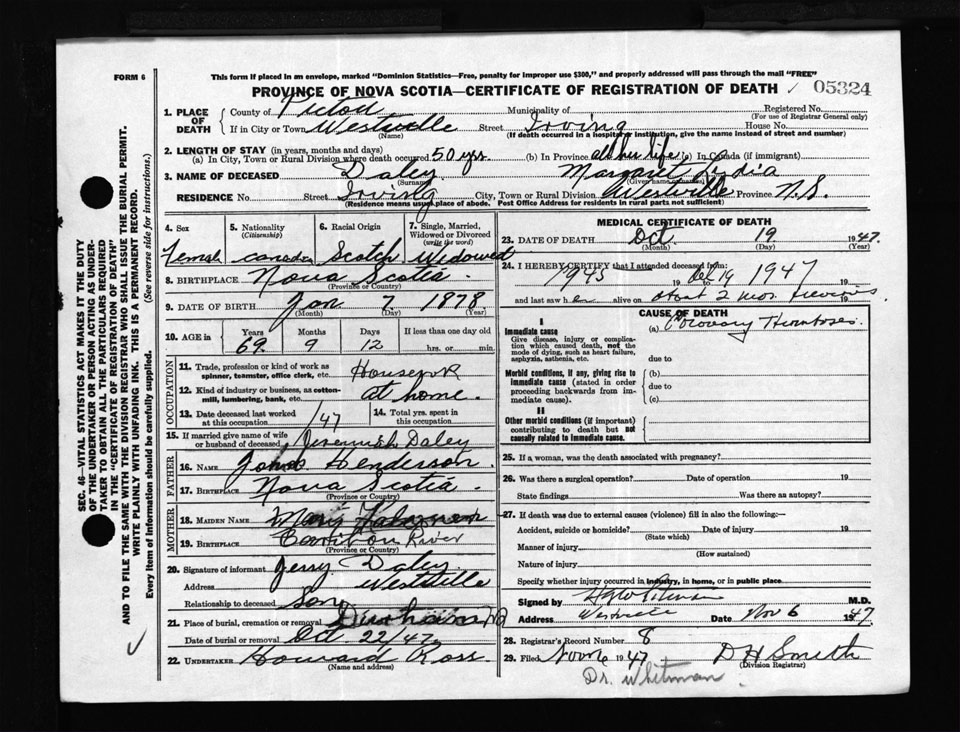 FORM 6
This form if placed in an envelope, marked "Dominion Statistics—Free, penalty for improper use $300," and properly addressed will pass through the mail "FREE"
PROVINCE OF NOVA SCOTIA—CERTIFICATE OF REGISTRATION OF DEATH
05324
1. PLACE OF DEATH
County of Pictou Municipality of Registered No.
(For use of Registrar General only)
If in City or Town Westville Street Irving House No.
(Name) (If death occurred in a hospital or institution, give the name instead of street and number)
2. LENGTH OF STAY (in years, months and days)
(a) In City, Town or Rural Division where death occurred 50 yrs. (b) In Province all her life (c) In Canada (if immigrant)
3. NAME OF DECEASED Daley Margaret Lydia
(Surname) (Given name or names)
RESIDENCE No. Street Irving City, Town or Rural Division Westville Province N.S.
(Residence means usual place of abode. Post Office Address for residents in rural parts not sufficient)
4. Sex Female
5. Nationality (Citizenship) Canadian
6. Racial Origin Scotch
7. Single, Married, Widowed or Divorced (write the word) Widowed
8. BIRTHPLACE Nova Scotia
(Province or Country)
9. DATE OF BIRTH Jan 7 1878
(Month) (Day) (Year)
10. AGE in Years Months Days If less than one day old
69 9 12 hrs. or min.
OCCUPATION
11. Trade, profession or kind of work as spinner, teamster, office clerk, etc. Housework
12. Kind of industry or business, as cotton-mill, lumbering, bank, etc. at home.
13. Date deceased last worked at this occupation /47
14. Total yrs. spent in this occupation
15. If married give name of wife or husband of deceased Jeremiah Daley
FATHER
16. NAME Henderson
17. BIRTHPLACE Nova Scotia
(Province or Country)
MOTHER
18. MAIDEN NAME Mary
19. BIRTHPLACE River
(Province or Country)
20. Signature of informant Jerry Daley
Address Westville
Relationship to deceased Son
21. Place of burial, cremation or removal Durham
Date of burial or removal Oct 22/47
22. UNDERTAKER Howard Ross
(Name and address)
MEDICAL CERTIFICATE OF DEATH
23. DATE OF DEATH Oct 19 1947
(Month) (Day) (Year)
24. I HEREBY CERTIFY that I attended deceased from:
1945 19 to Oct 19 1947 19
and last saw her alive on about 2 mos. previous 19
CAUSE OF DEATH
I
Immediate cause
Give disease, injury or complication which caused death, not the mode of dying, such as heart failure, asphyxia, asthenia, etc.
(a) Coronary Thrombosis
due to
Morbid conditions, if any, giving rise to immediate cause (stated in order proceeding backwards from immediate cause).
(b)
due to
(c)
II
Other morbid conditions (if important) contributing to death but not causally related to immediate cause.
25. If a woman, was the death associated with pregnancy?
26. Was there a surgical operation? Date of operation 19
State findings Was there an autopsy?
27. If death was due to external causes (violence) fill in also the following:—
Accident, suicide or homicide? Date of injury 19
(State which)
Manner of injury
(How sustained)
Nature of injury
Specify whether injury occurred in industry, in home, or in public place
Signed by M.D.
Address Westville Date Nov 6 1947
28. Registrar's Record Number 8
29. Filed Nov 6 1947 D H Smith
(Division Registrar)
Dr. Whitman
SEC. 46—VITAL STATISTICS ACT MAKES IT THE DUTY
OF THE UNDERTAKER OR PERSON ACTING AS UNDER-
TAKER TO OBTAIN ALL THE PARTICULARS REQUIRED
IN THE "CERTIFICATE OF REGISTRATION OF DEATH"
AND TO FILE THE SAME WITH THE DIVISION REGISTRAR WHO SHALL ISSUE THE BURIAL PERMIT.
WRITE PLAINLY WITH UNFADING INK. THIS IS A PERMANENT RECORD.
Every item of Information should be carefully supplied. (See reverse side for instructions.)